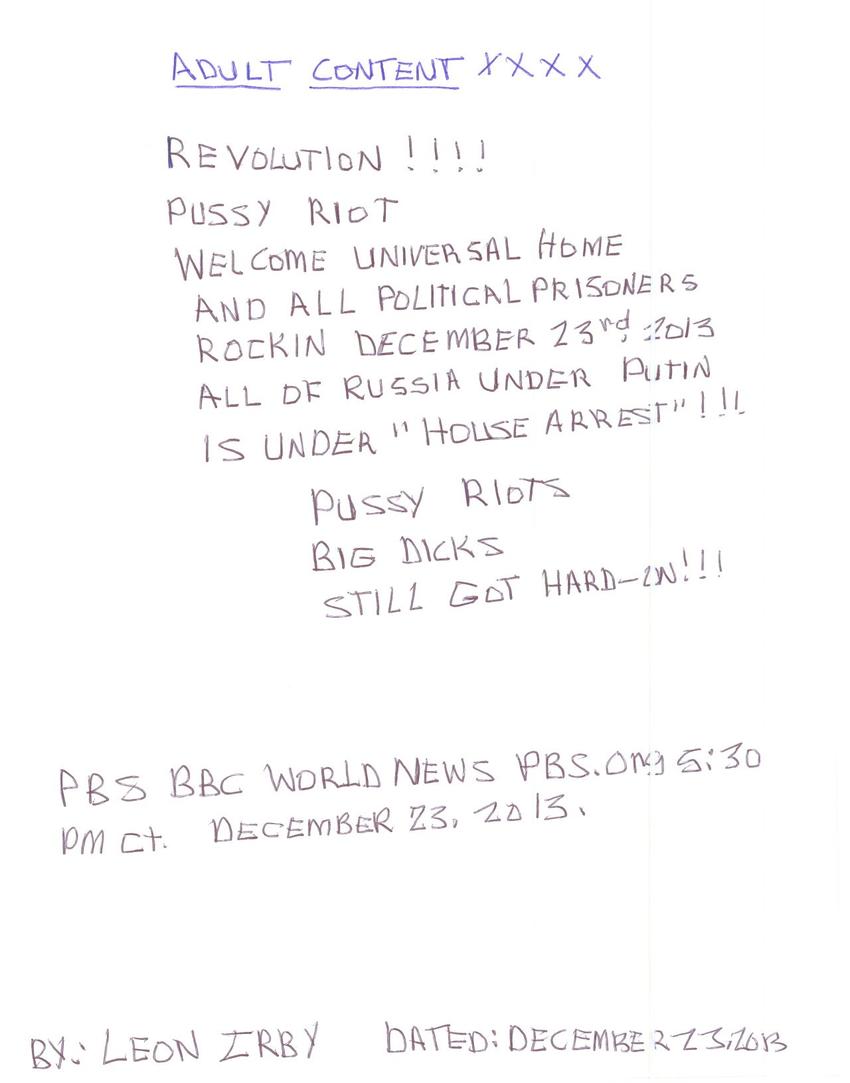 ADULT CONTENT XXXX
REVOLUTION !!!!
PUSSY RIOT
WELCOME UNIVERSAL HOME
AND ALL POLITICAL PRISONERS
ROCKIN DECEMBER 23rd, 2013
ALL OF RUSSIA UNDER PUTIN
IS UNDER "HOUSE ARREST"!!!
PUSSY RIOTS
BIG DICKS
STILL GOT HARD-IN!!!
PBS BBC WORLD NEWS PBS.Org 5:30
PM Ct. DECEMBER 23, 2013.
BY: LEON IRBY DATED: DECEMBER 23, 2013